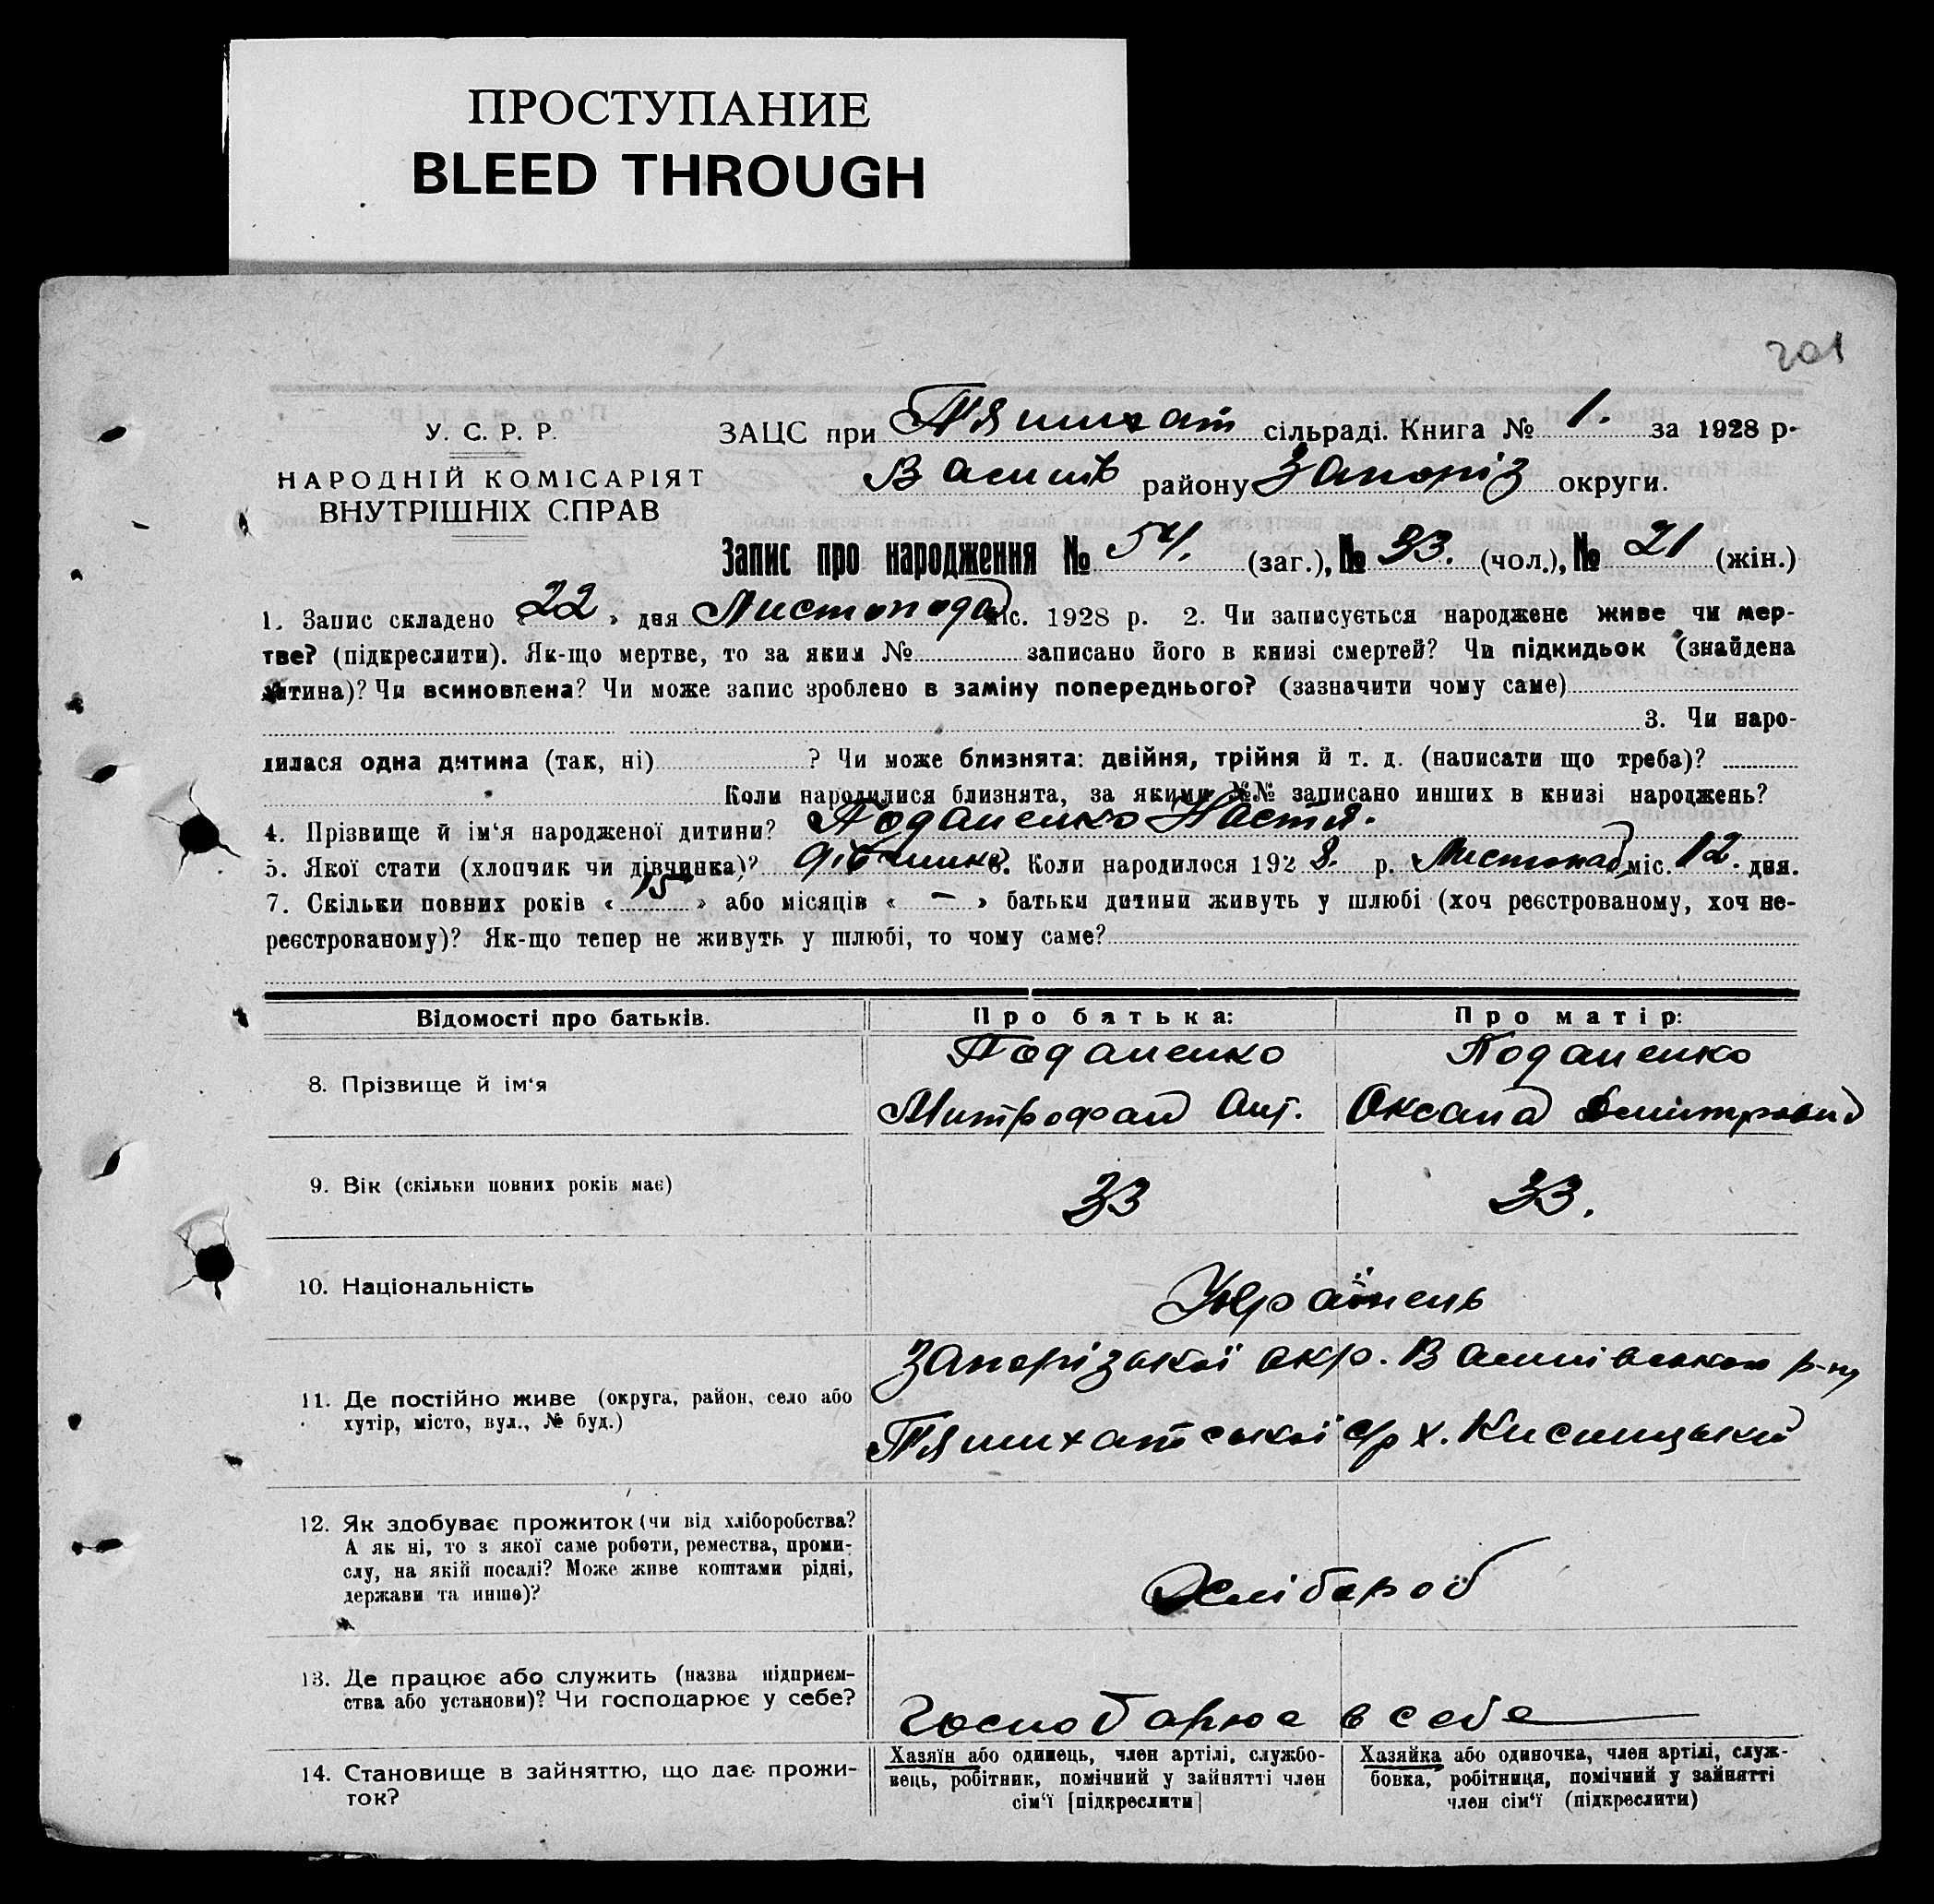 ПРОСТУПАНИЕ
BLEED THROUGH
201
У. С. Р. Р.
НАРОДНІЙ КОМІСАРІЯТ
ВНУТРІШНІХ СПРАВ
ЗАЦС при П'ятихат сільраді. Книга № 1. за 1928 р.
Василів району Запоріз округи.
Запис про народження № 54. (заг.), № 33. (чол.), № 21 (жін.)
1. Запис складено « 22 » дня Листопада міс. 1928 р. 2. Чи записується народжене живе чи мер-
тве? (підкреслити). Як-що мертве, то за яким № записано його в книзі смертей? Чи підкидьок (знайдена
дитина)? Чи всиновлена? Чи може запис зроблено в заміну попереднього? (зазначити чому саме)
3. Чи наро-
дилася одна дитина (так, ні) ? Чи може близнята: двійня, трійня й т. д. (написати що треба)?
Коли народилися близнята, за якими №№ записано инших в книзі народжень?
4. Прізвище й ім'я народженої дитини? Поданенко Настя.
5. Якої стати (хлопчик чи дівчинка)? дівчинка. Коли народилося 192 8. р. Листопад міс. 12. дня.
7. Скільки повних років « 15 » або місяців « — » батьки дитини живуть у шлюбі (хоч реєстрованому, хоч не-
реєстрованому)? Як-що тепер не живуть у шлюбі, то чому саме?
Відомості про батьків. Про батька: Про матір:
8. Прізвище й ім'я Поданенко Поданенко
Митрофан Ант. Оксана Дмитровна
9. Вік (скільки повних років має) 33 33.
10. Національність Українець
11. Де постійно живе (округа, район, село або
хутір, місто, вул., № буд.)
Запорізької окр. Василівського р-ну
П'ятихатської с/р х.
12. Як здобуває прожиток (чи від хліборобства?
А як ні, то з якої саме роботи, ремества, проми-
слу, на якій посаді? Може живе коштами рідні,
держави та инше)?
Хлібороб
13. Де працює або служить (назва підприєм-
ства або установи)? Чи господарює у себе?
Господарює в себе
14. Становище в зайняттю, що дає прожи-
ток?
Хазяїн або одинець, член артілі, службо-
вець, робітник, помічний у зайнятті член
сім'ї [підкреслити]
Хазяйка або одиночка, член артілі, служ-
бовка, робітниця, помічний у зайнятті
член сім'ї (підкреслити)